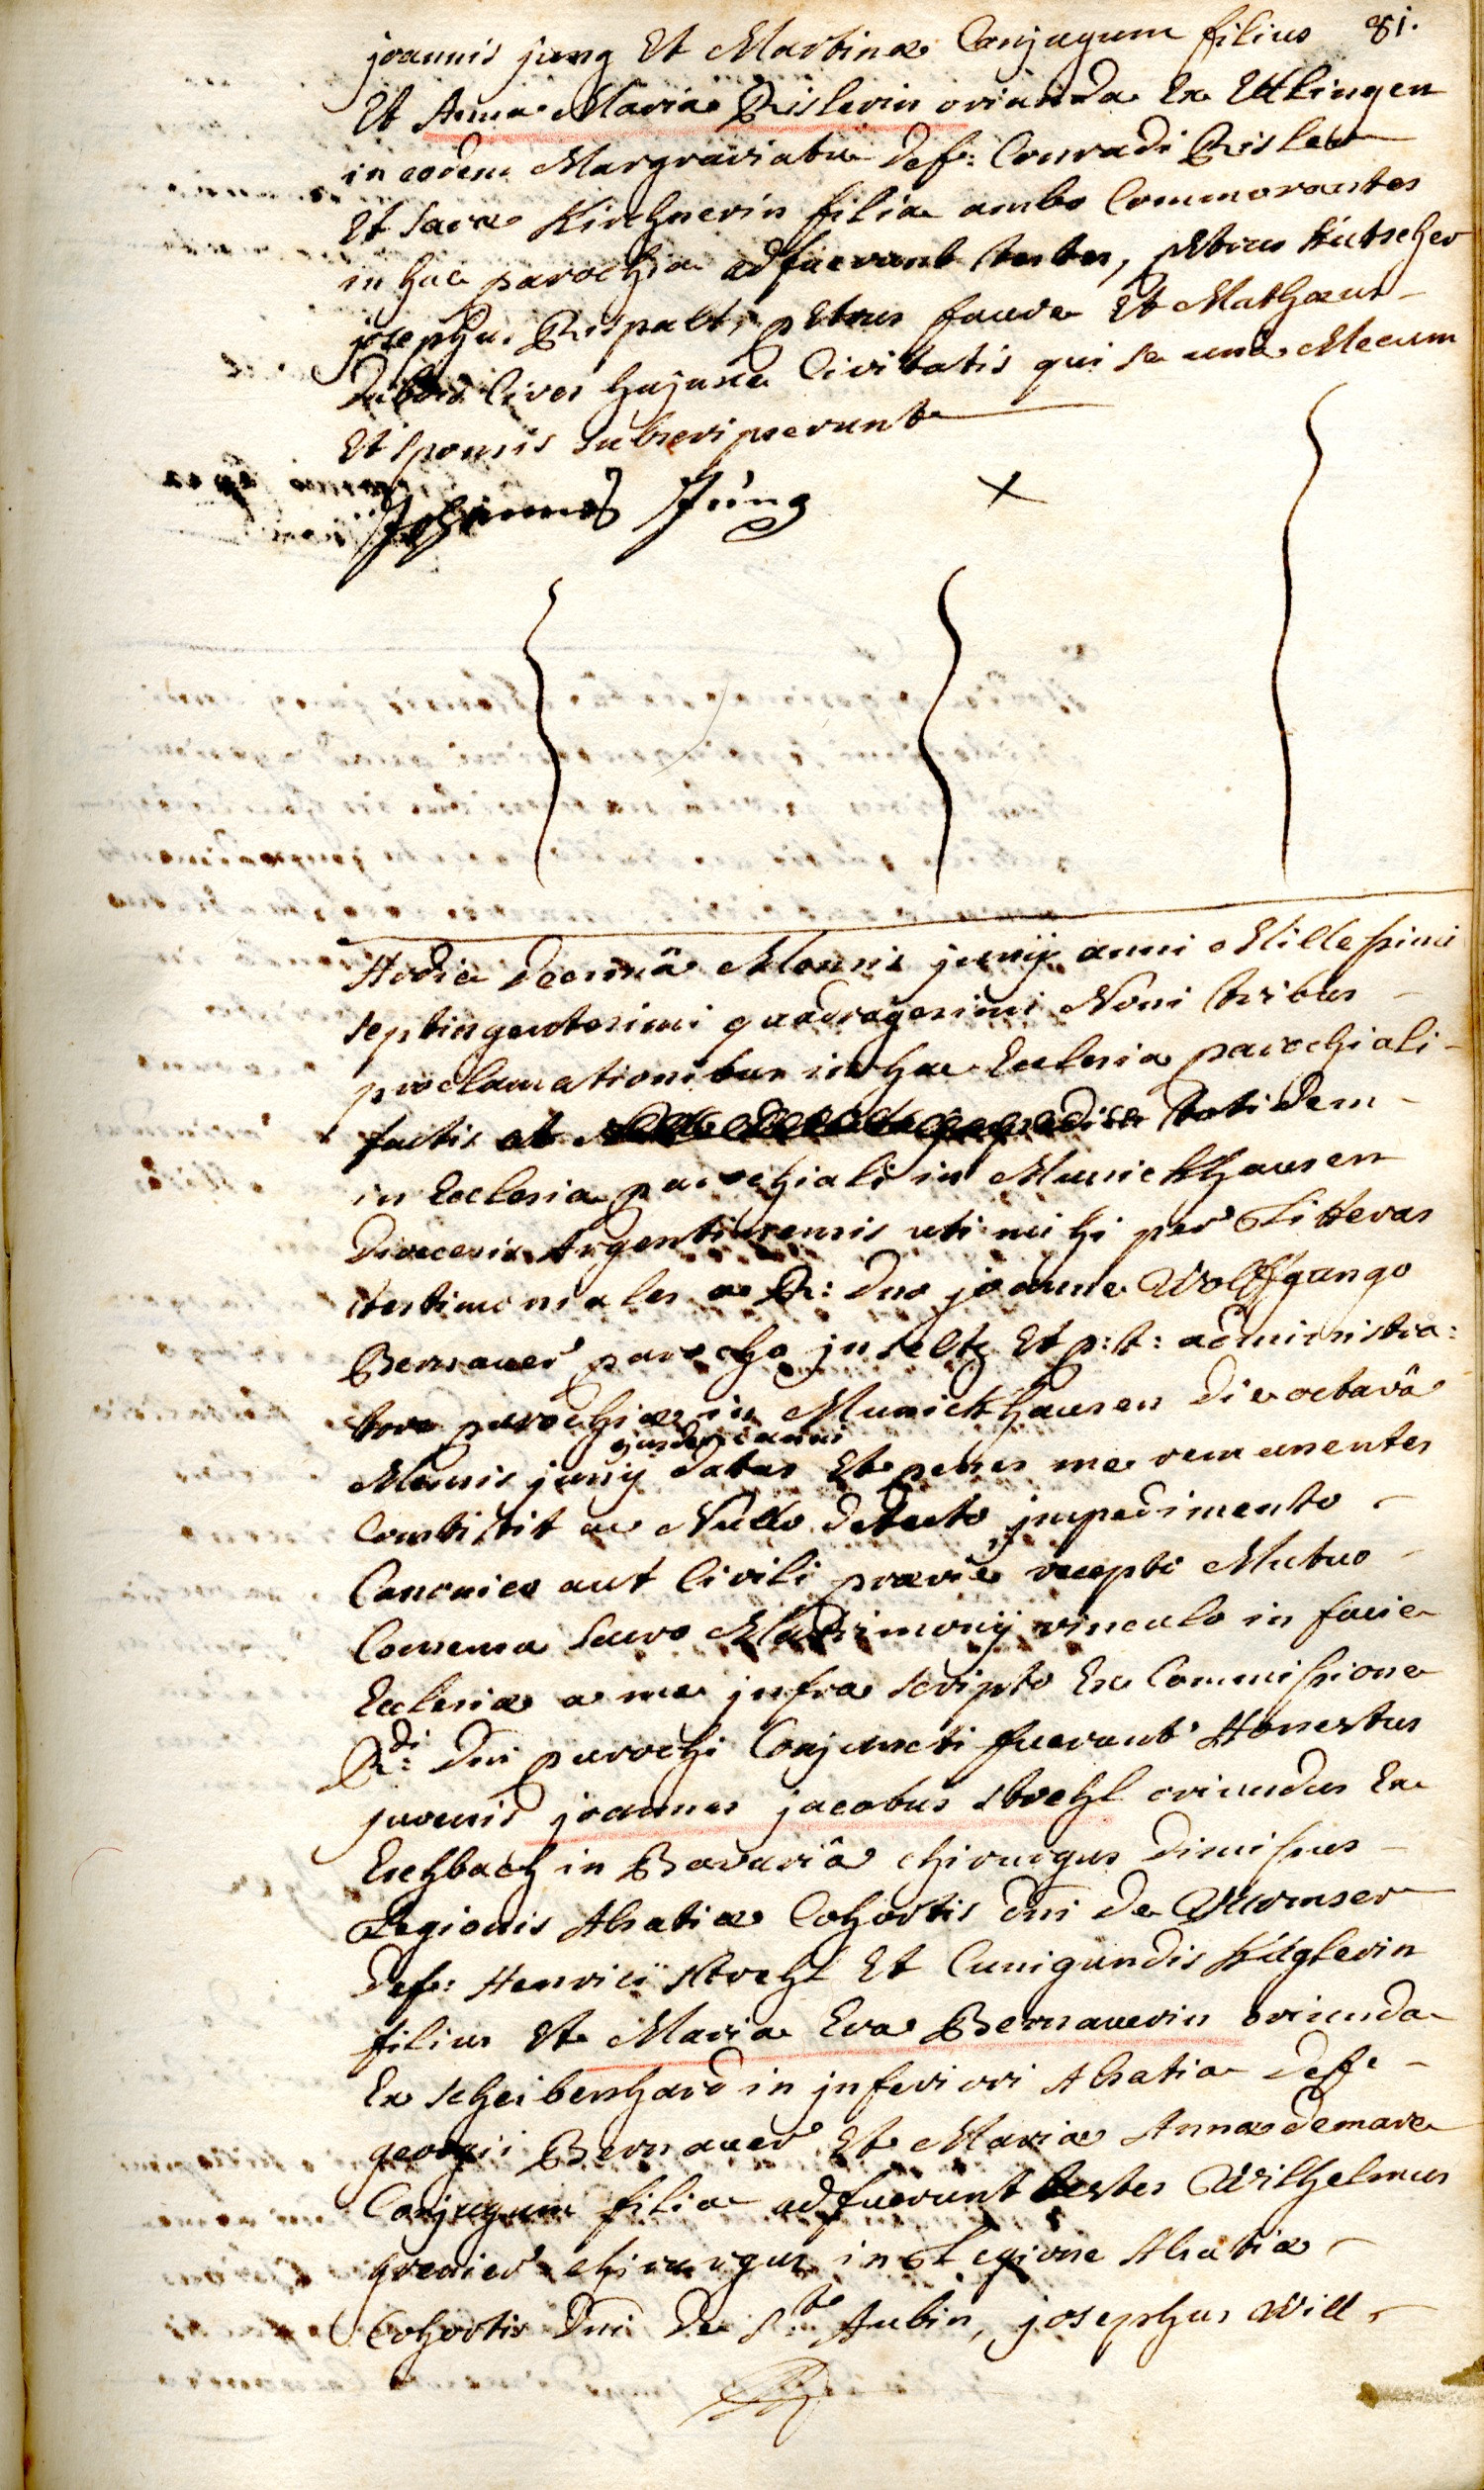 81.
joannis jung Et Martinæ Conjugum filius
Et Anna Maria Rislerin oriunda Ex Ettlingen
in eodem Margraviatu def: Conradi Risler
Et Saræ Kirchnerin filia ambo Commorantes
in hac parochia adfuerunt testes, petrus Kutscher
josephus Rispalt, petrus faude Et Mathæus
Cives hujusce Civitatis qui se una Mecum
Et sponsis subscripserunt
Johannes Jung ×
Hodie decimâ Mensis junij anni Millesimi
septingentesimi quadragesimi Noni tribus
proclamationibus in hac Ecclesia parochiali
factis totidem
in Ecclesia parochiali in Munickhausen
Diœcesis Argentinensis uti mihi per Litteras
testimoniales a R: dno joanne Wolffgango
Bernauer parocho in seltz Et p: t: administra:
tore parochiæ in Munickhausen die octavâ
ejusdem anni
Mensis junij datas Et penes me remanentes
Constitit ac Nullo detecto impedimento
Canonico aut Civili prævie recepto Mutuo
Consensu sacro Matrimonij vinculo in facie
Ecclesiæ a me infra scripto Ex Commissione
R:di Dni parochi Conjuncti fuerunt Honestus
juvenis joannes jacobus strehl oriundus Ex
Eschbach in Bavariâ chirurgus dimissus
Legionis Alsatiæ Cohortis dni de Wurmser
def: Henrici strehl Et Cunigundis Küglerin
filius Et Maria Eva Bernauerin oriunda
Ex scheibenhard in inferiori Alsatia deff:
georgii Bernauer Et Mariæ Annæ demare
Conjugum filia adfuerunt testes Wilhelmus
grenier chirurgus in Legione Alsatiæ
Cohortis Dni De S:te Aubin, josephus Will